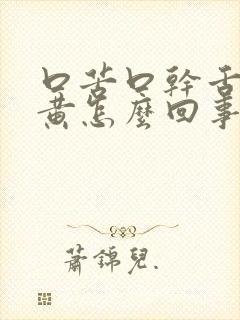 口苦口幹舌
黃怎麼回事
蕭錦兒.